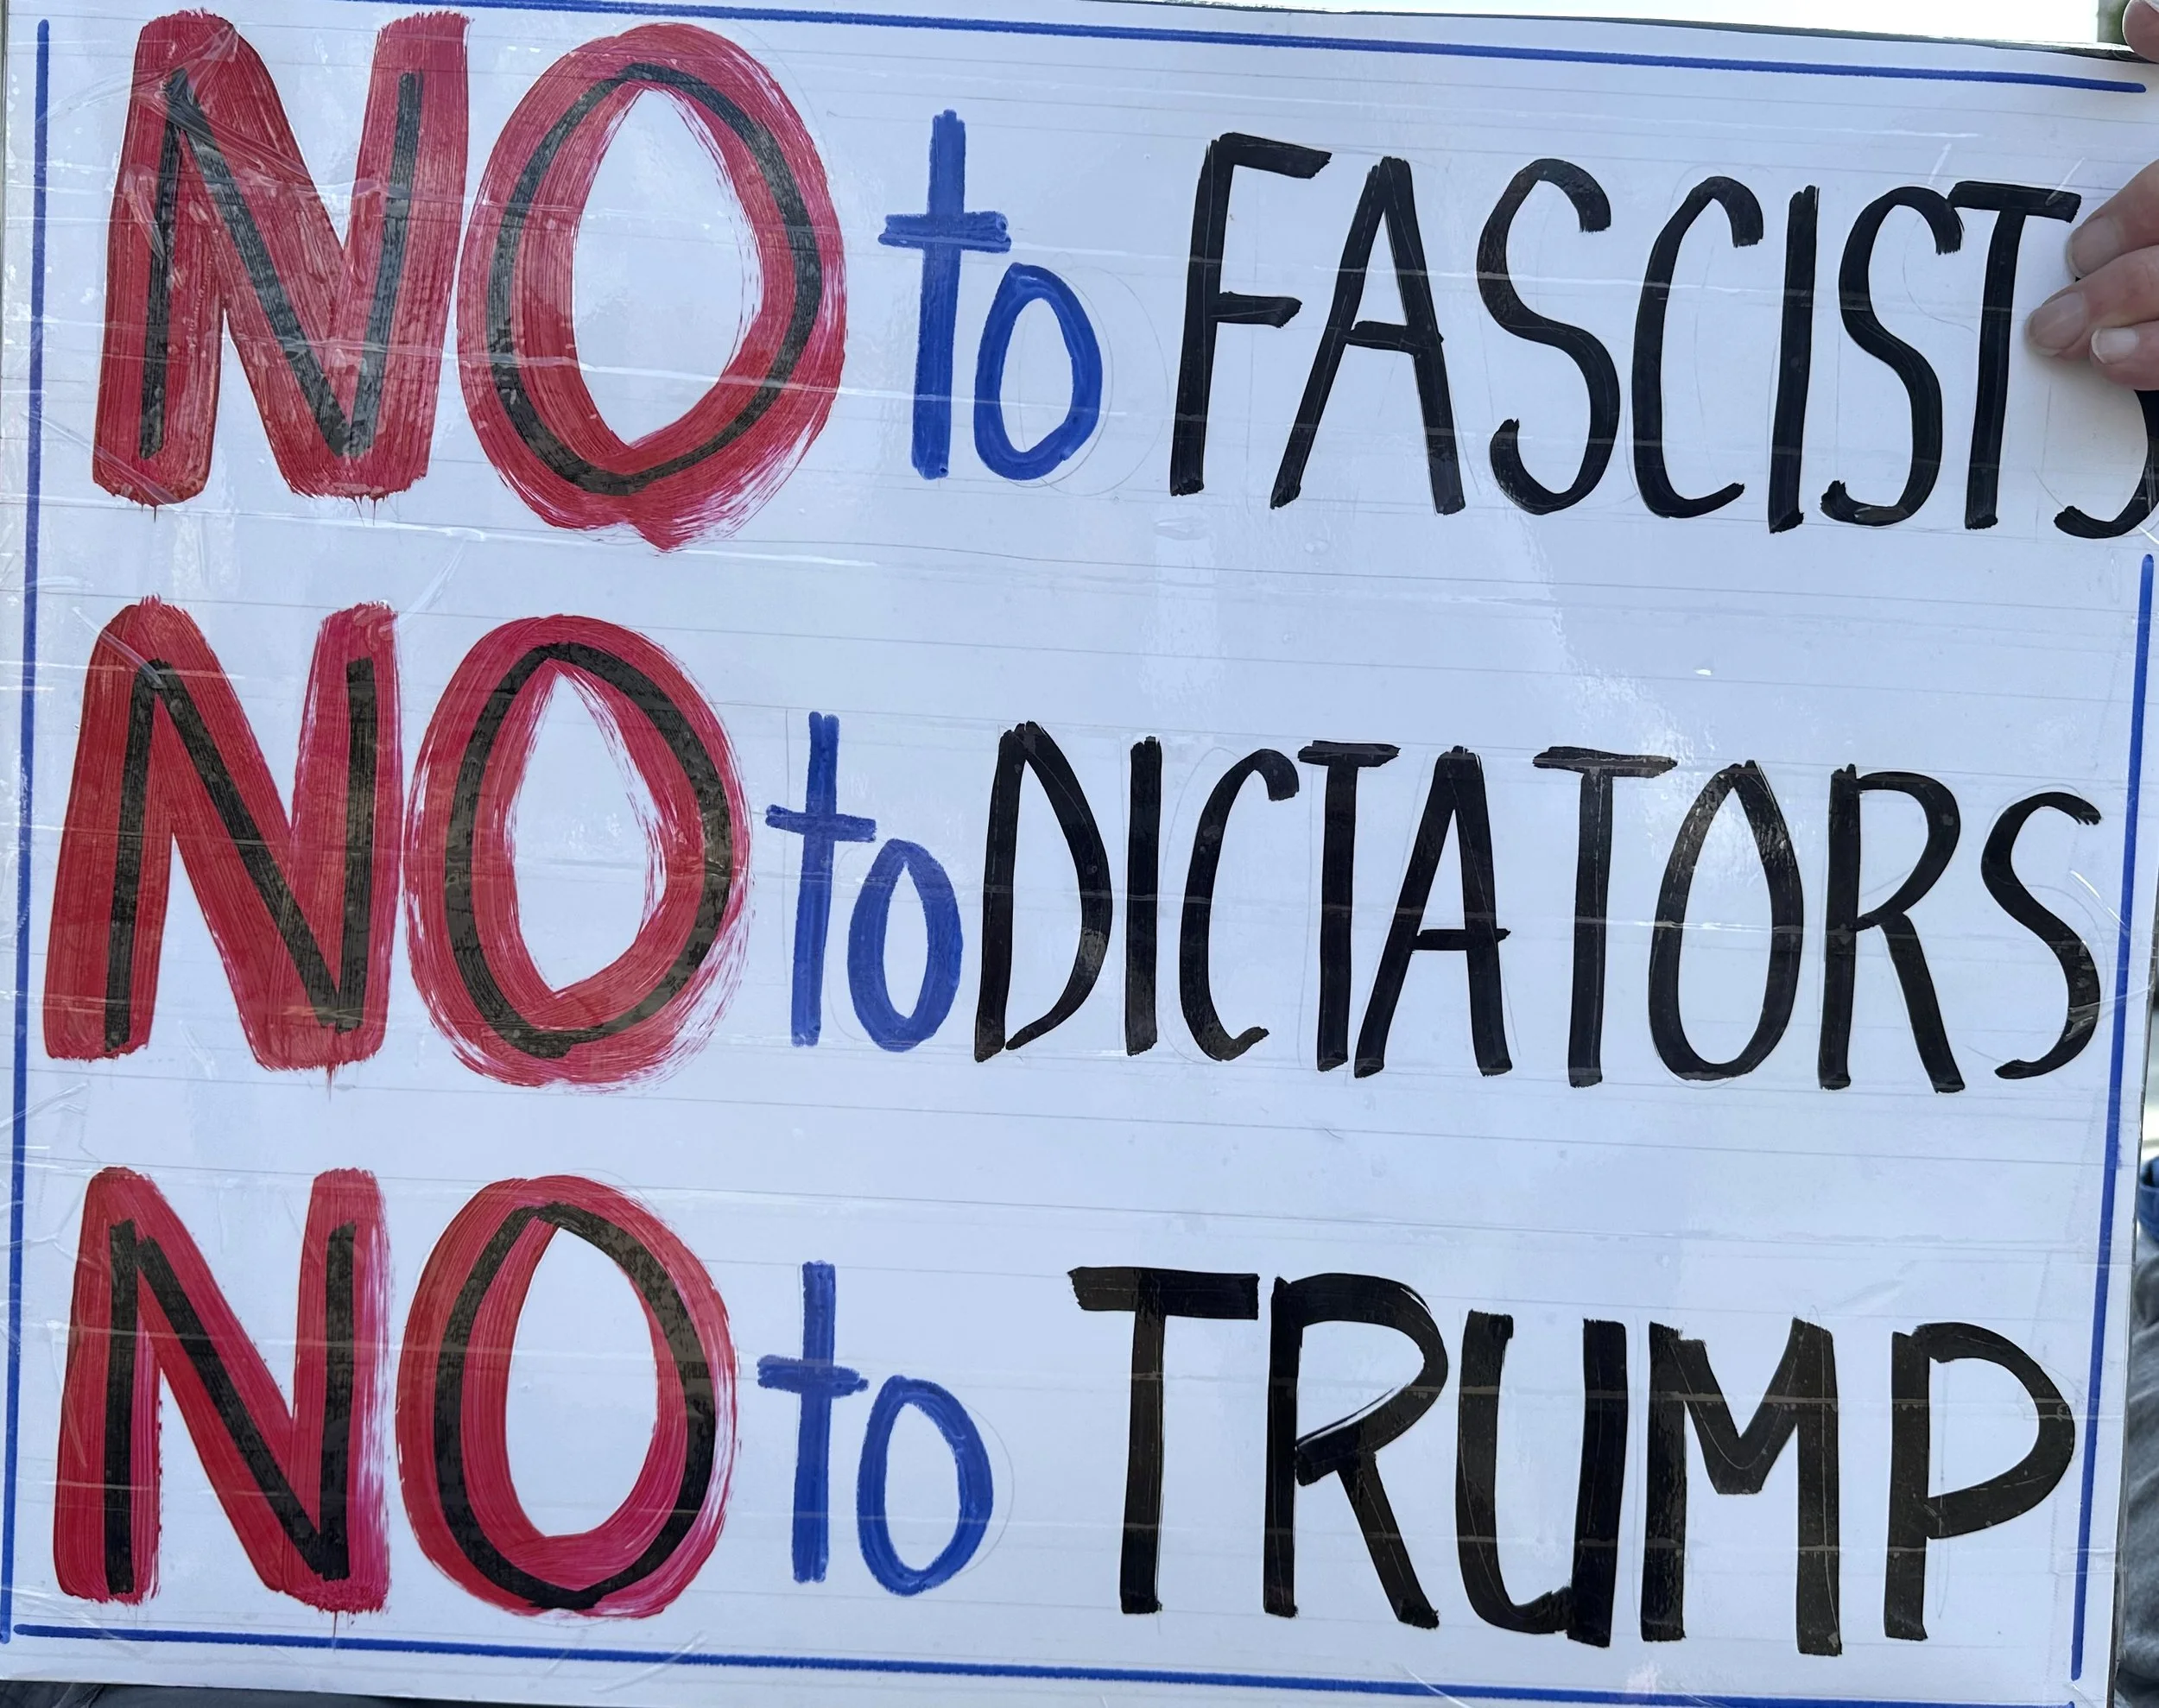 NO to FASCISTS
NO to DICTATORS
NO to TRUMP